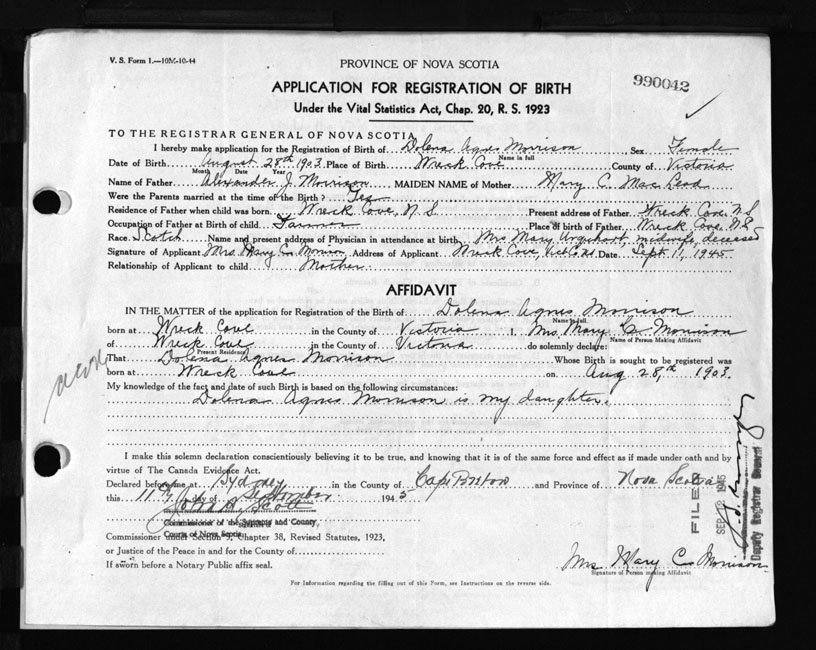 V. S. Form 1.—10M-10-44
PROVINCE OF NOVA SCOTIA
990042
APPLICATION FOR REGISTRATION OF BIRTH
Under the Vital Statistics Act, Chap. 20, R. S. 1923
TO THE REGISTRAR GENERAL OF NOVA SCOTIA
I hereby make application for the Registration of Birth of Dolena Agnes Morrison Sex Female
Name in full
Date of Birth August 28th 1903 Place of Birth Wreck Cove County of Victoria
Month Date Year
Name of Father Alexander J. Morrison MAIDEN NAME of Mother Mary C. MacLeod
Were the Parents married at the time of the Birth? Yes
Residence of Father when child was born Wreck Cove, N.S. Present address of Father Wreck Cove N.S
Occupation of Father at Birth of child Farmer Place of birth of Father Wreck Cove N.S.
Race Scotch Name and present address of Physician in attendance at birth Mrs Mary Urquhart, midwife, deceased
Signature of Applicant Mrs. Mary C. Morrison Address of Applicant Wreck Cove, Vict. Co. Date Sept 11, 1945
Relationship of Applicant to child Mother
AFFIDAVIT
IN THE MATTER of the application for Registration of the Birth of Dolena Agnes Morrison
Name in full
born at Wreck Cove in the County of Victoria I, Mrs. Mary C. Morrison
Name of Person Making Affidavit
of Wreck Cove in the County of Victoria do solemnly declare:
Present Residence
That Dolena Agnes Morrison Whose Birth is sought to be registered was
born at Wreck Cove on Aug 28,th 1903.
My knowledge of the fact and date of such Birth is based on the following circumstances:
Dolena Agnes Morrison is my daughter.
I make this solemn declaration conscientiously believing it to be true, and knowing that it is of the same force and effect as if made under oath and by
virtue of The Canada Evidence Act.
Declared before me at Sydney in the County of Cape Breton and Province of Nova Scotia
this 11th day of September 1945
John Scott
Commissioner of the Supreme and County
Courts of Nova Scotia
Commissioner under Section 9, Chapter 38, Revised Statutes, 1923,
or Justice of the Peace in and for the County of
If sworn before a Notary Public affix seal.
Mrs Mary C. Morrison
Signature of Person making Affidavit
For Information regarding the filling out of this Form, see Instructions on the reverse side.
FILED
SEP 12 1945
Deputy Registrar General